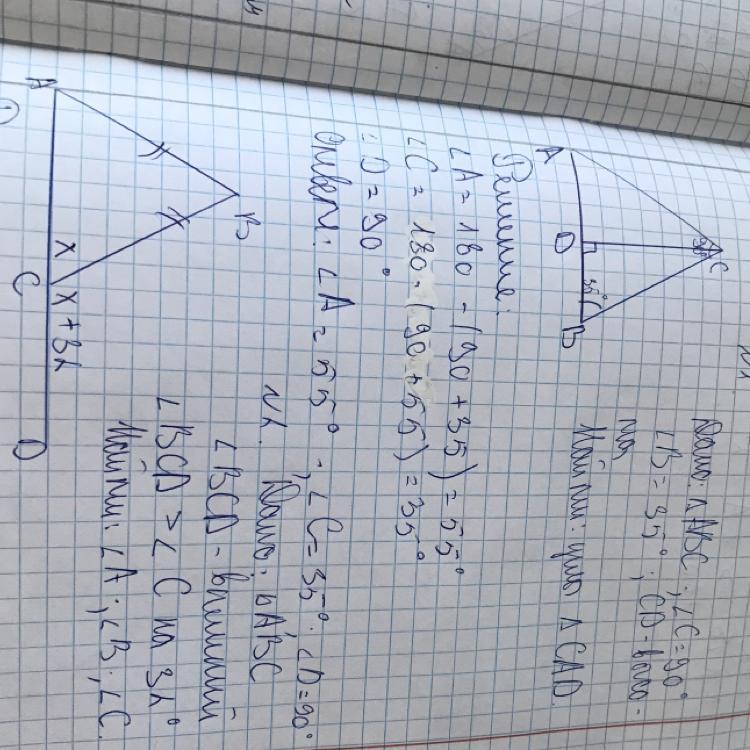 N1
Дано: △ABC; ∠C=90°
∠B=35°; CD-высо-
та
Найти: углы △CAD.
A
D
B
C
90°
35°
Решение:
∠A=180-(90+35)=55°
∠C=180-(90+55)=35°
∠D=90°
Ответ: ∠A=55°; ∠C=35°. ∠D=90°
N2. Дано: △ABC
∠BCD-внешний
∠BCD>∠C на 32°
Найти: ∠A; ∠B; ∠C.
A
B
C
D
x
x+32